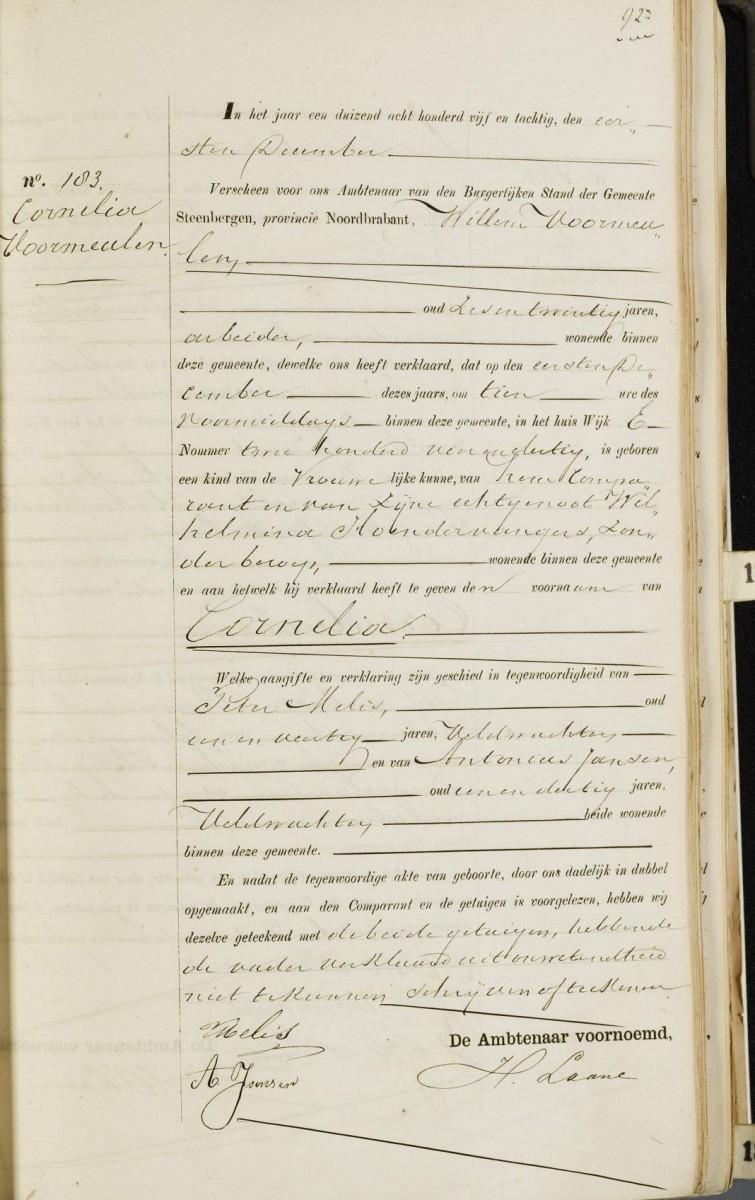 92
In het jaar een duizend acht honderd vijf en tachtig, den eer„
sten December
no. 183.
Cornelia
Voormeulen.
Verscheen voor ons Ambtenaar van den Burgerlijken Stand der Gemeente
Steenbergen, provincie Noordbrabant, Willem Voormeu„
len,
oud zesentwintig jaren,
arbeider, wonende binnen
deze gemeente, dewelke ons heeft verklaard, dat op den eersten De„
cember dezes jaars, om tien ure des
Voormiddags binnen deze gemeente, in het huis Wijk E
Nommer twee honderd vier en dertig, is geboren
een kind van de Vrouwe lijke kunne, van hem Compa„
rant en van zijne echtgenoot Wil„
helmina Hoendervangers, zon„
der beroep, wonende binnen deze gemeente
en aan hetwelk hij verklaard heeft te geven den voornaam van
Cornelia.
Welke aangifte en verklaring zijn geschied in tegenwoordigheid van
Peter Melis, oud
een en veertig jaren, Veldwachter
en van Antonius Jansen,
oud een en dertig jaren,
Veldwachter beide wonende
binnen deze gemeente.
En nadat de tegenwoordige akte van geboorte, door ons dadelijk in dubbel
opgemaakt, en aan den Comparant en de getuigen is voorgelezen, hebben wij
dezelve geteekend met de beide getuigen, hebbende
de vader verklaard uit onwetendheid
niet te kunnen schrijven of teekenen
Melis
De Ambtenaar voornoemd,
A Jansen
H. Laane